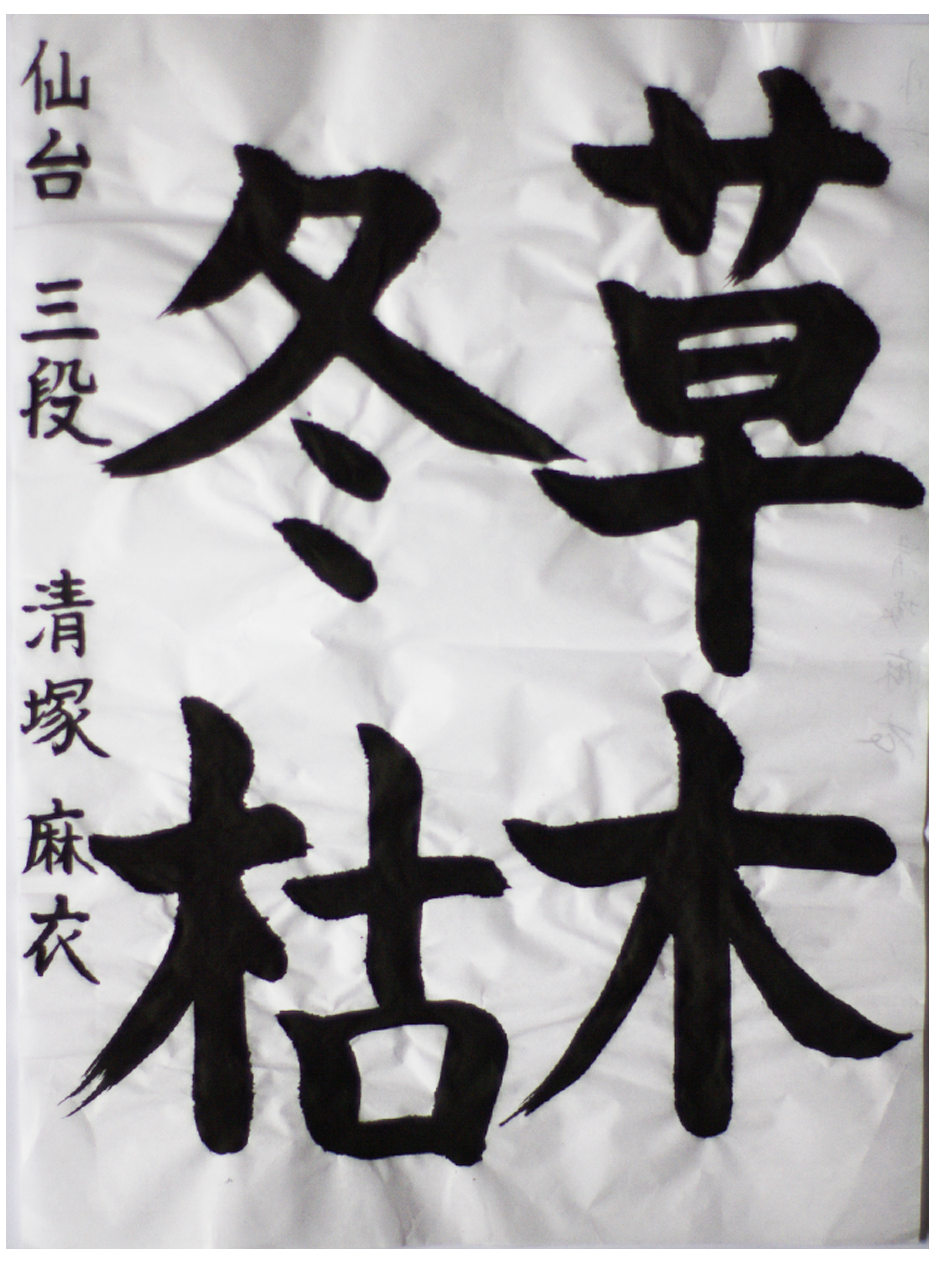 草木
冬枯
仙台 三段 清塚 麻衣